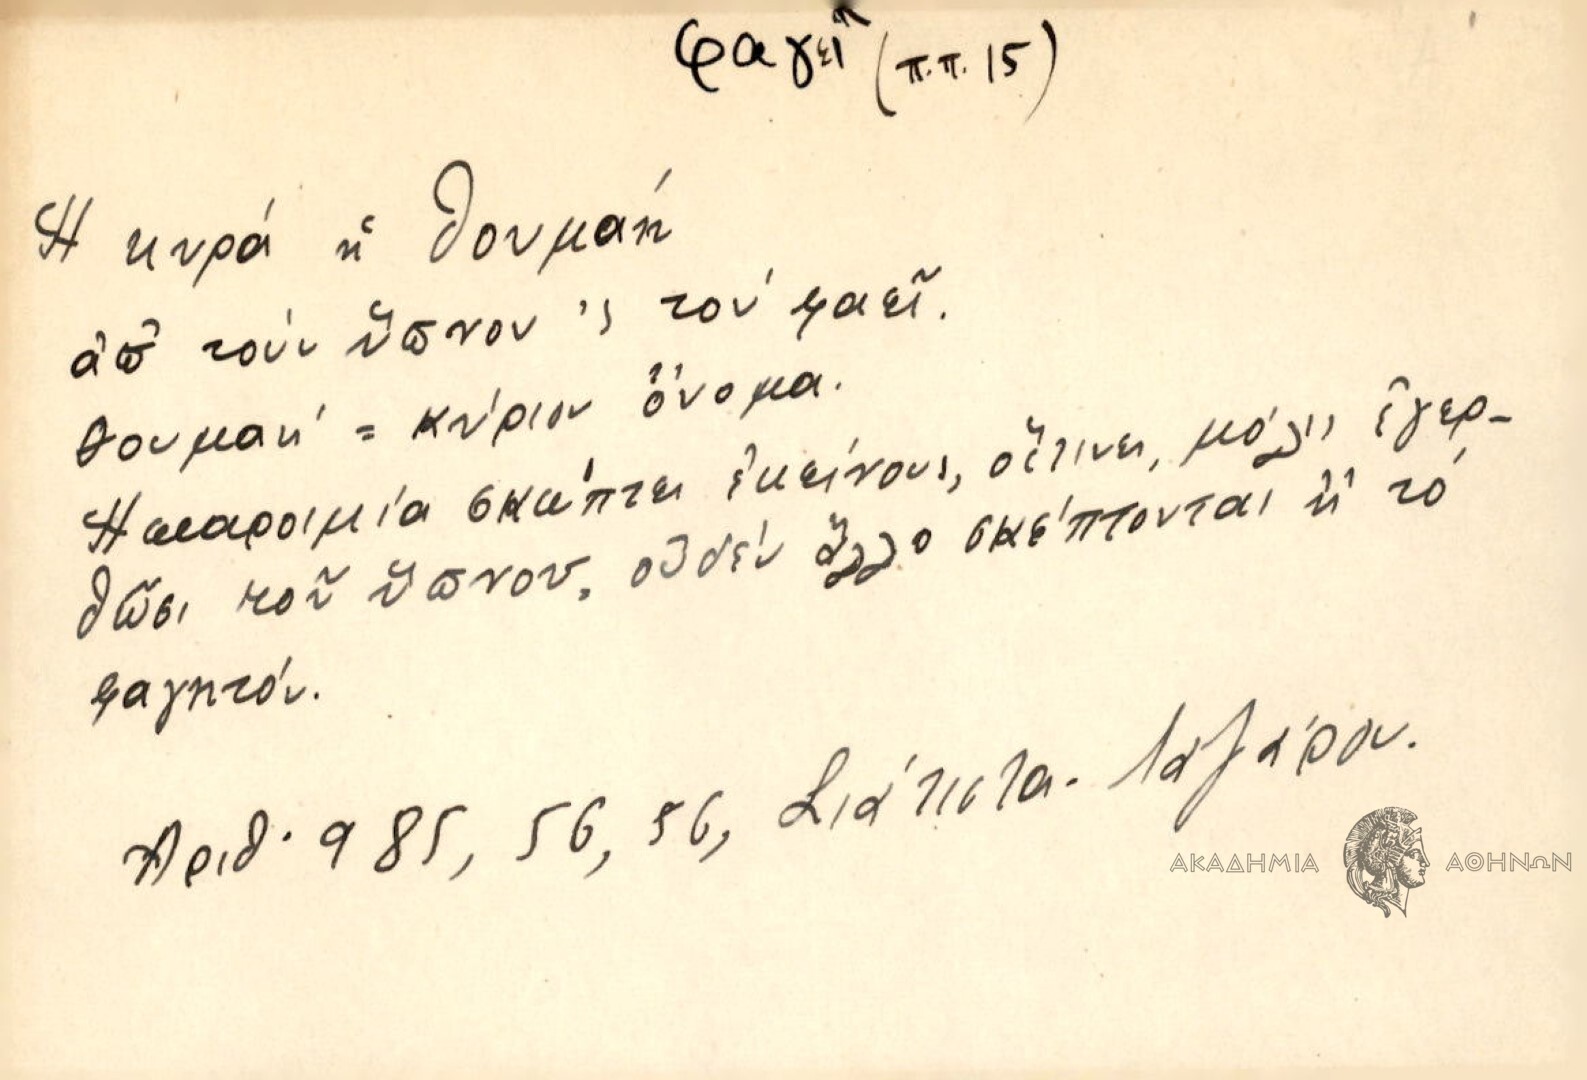 φαγεῖ (π.π. 15)
Ἡ κυρά ἡ Θουμαή
ἀπ' τοὺν ὕπνον 'ς τοὺ φαεῖ.
Θουμαή = κύριον ὄνομα.
Ἡ παροιμία σκώπτει ἐκείνους, οἵτινες, μόλις ἐγερ-
θῶσι τοῦ ὕπνου, οὐδὲν ἄλλο σκέπτονται ἢ τό
φαγητόν.
Ἀριθ. 985, 56, 56, Σιάτιστα. Λαζάρου.
ΑΚΑΔΗΜΙΑ ΑΘΗΝΩΝ